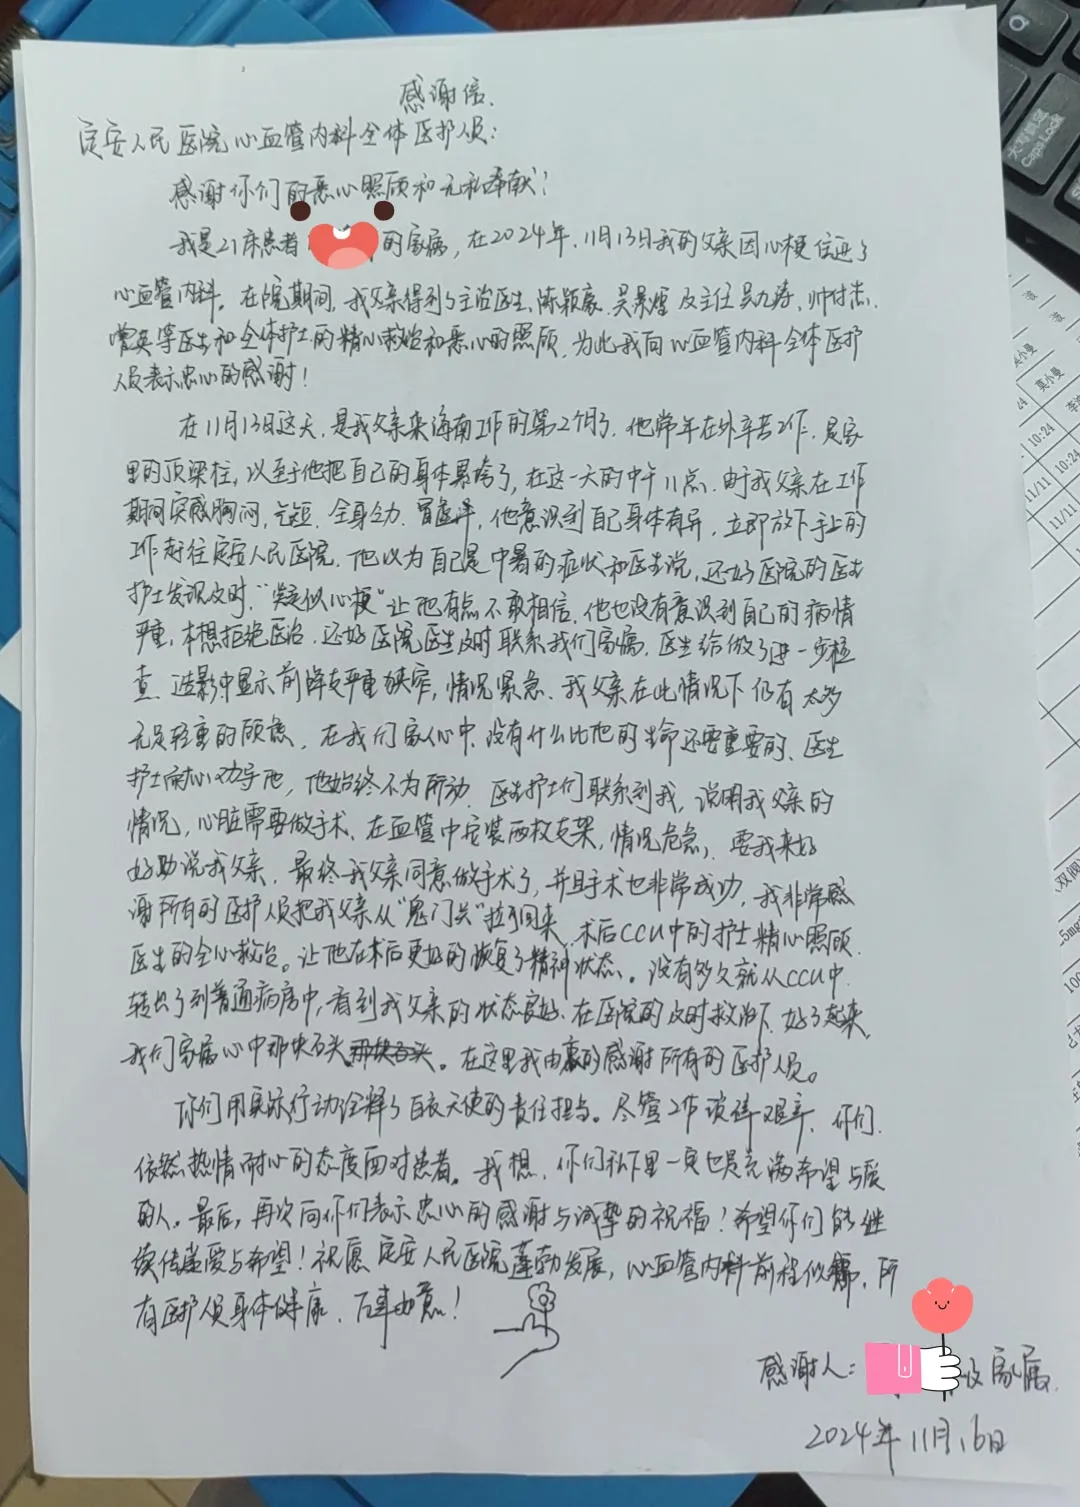 感谢信.
定安人民医院心血管内科全体医护人员:
感谢你们的悉心照顾和无私奉献!
我是21床患者 的家属,在2024年.11月13日我的父亲因心梗住进了
心血管内科。在院期间,我父亲得到了主治医生、陈颖豪、吴景煌及主任吴九涛、帅付志.
曾英等医生和全体护士的精心救治和悉心的照顾,为此我向心血管内科全体医护
人员表示忠心的感谢!
在11月13日这天,是我父亲来海南工作的第2个月,他常年在外辛苦工作,是家
里的顶梁柱,以至于他把自己的身体累垮了,在这一天的中午11点.由于我父亲在工作
期间突感胸闷,气短.全身乏力.冒虚汗,他意识到自己身体有异,立即放下手上的
工作赶往定安人民医院.他以为自己是中暑的症状和医生说,还好医院的医生
护士发现及时."疑似心梗"让他有点不敢相信.他也没有意识到自己的病情
严重,本想拒绝医治.还好医院医生及时联系我们家属.医生给做了进一步检
查.造影中显示前降支严重狭窄,情况紧急.我父亲在此情况下仍有太多
无足轻重的顾虑,在我们家人心中.没有什么比他的生命还要重要的、医生
护士耐心劝导他,他始终不为所动.医生护士们联系到我,说明我父亲的
情况,心脏需要做手术.在血管中安装两枚支架,情况危急,要我来好
好助说我父亲.最终我父亲同意做手术了,并且手术也非常成功,我非常感
谢所有的医护人员把我父亲从"鬼门关"拉了回来.术后CCU中的护士精心照顾.
医生的全心救治。让他在术后更好的恢复了精神状态。没有多久就从CCU中.
转出了到普通病房中,看到我父亲的状态良好.在医院的及时救治下.好了起来.
我们家属心中那块石头 。在这里我由衷的感谢所有的医护人员。
你们用实际行动诠释了白衣天使的责任担当。尽管工作琐碎艰辛、你们.
依然热情耐心的态度面对患者。我想.你们私下里一定也是充满希望与爱
的人。最后,再次向你们表示忠心的感谢与诚挚的祝福!希望你们能继
续传递爱与希望!祝愿定安人民医院蓬勃发展,心血管内科前程似锦.所
有医护人员身体健康.万事如意!
感谢人: 及家属.
2024年11月16日
大写锁定
CapsLock
Q
莫小曼
10:24
11/11
10:24
11/11